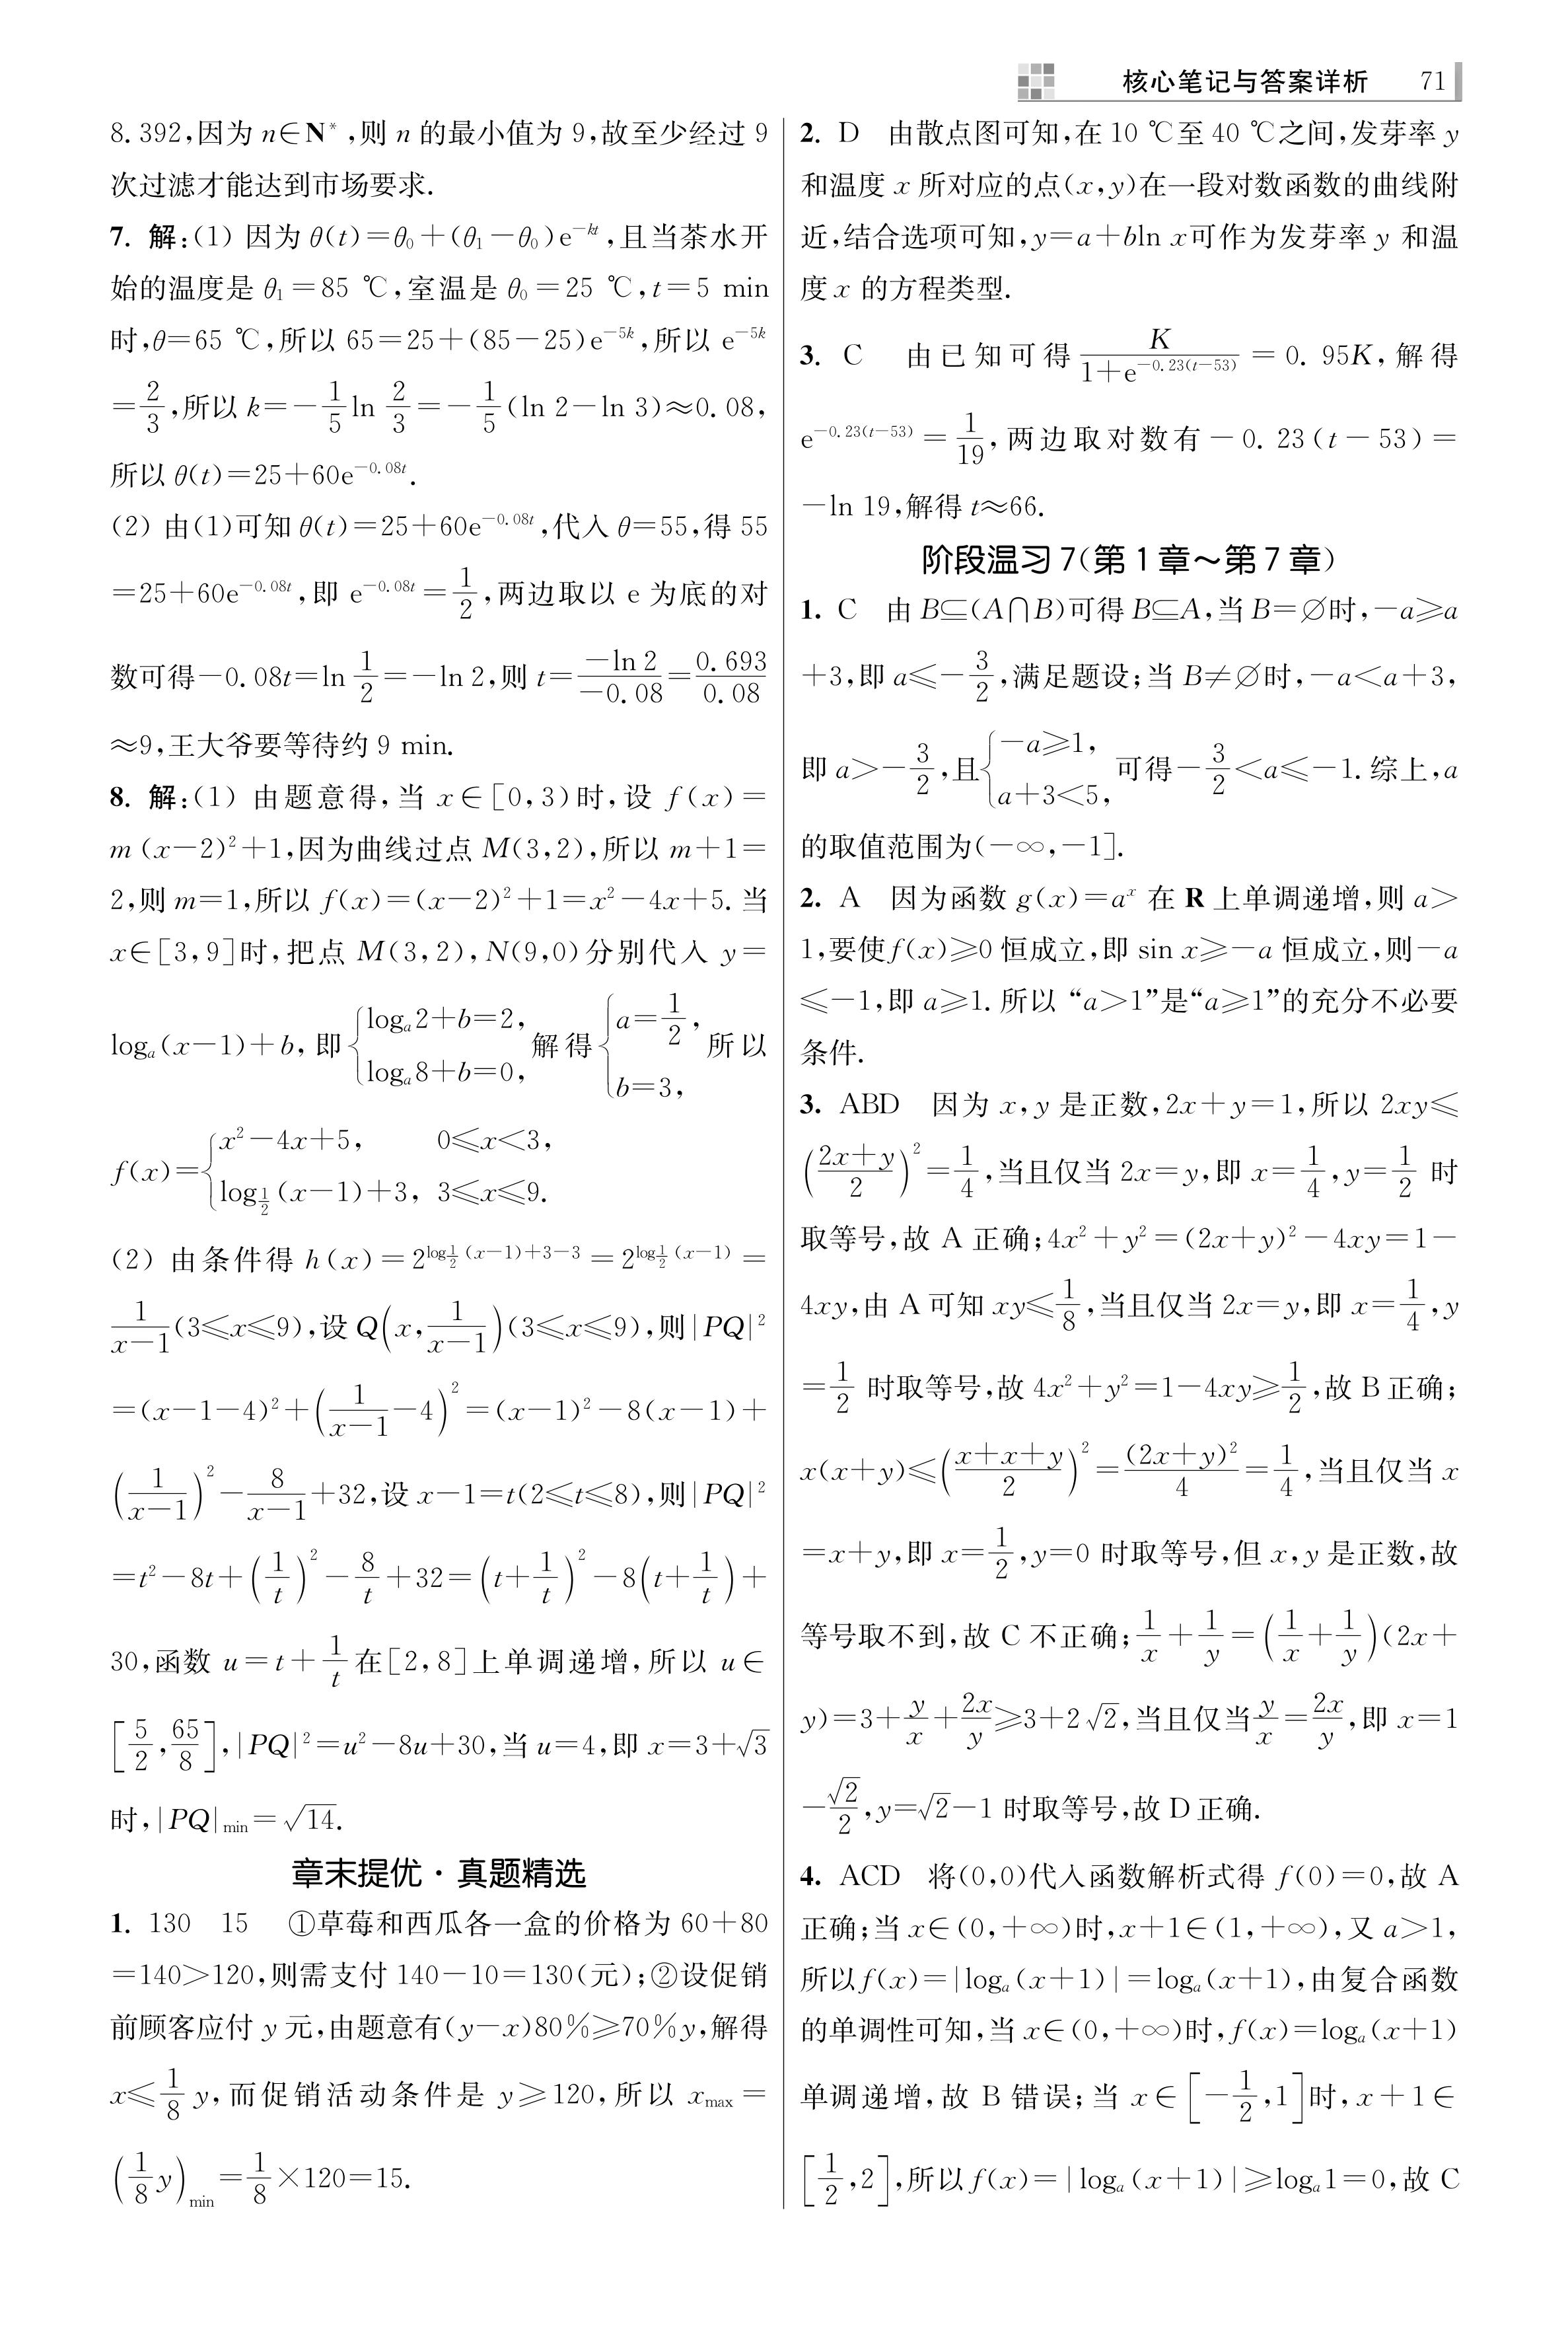 核心笔记与答案详析 71
8.392,因为 n∈N*,则 n 的最小值为 9,故至少经过 9
次过滤才能达到市场要求.
7. 解:(1) 因为 θ(t)=θ₀+(θ₁−θ₀)e^{−kt},且当茶水开
始的温度是 θ₁=85 ℃,室温是 θ₀=25 ℃,t=5 min
时,θ=65 ℃,所以 65=25+(85−25)e^{−5k},所以 e^{−5k}
=\frac{2}{3},所以 k=−\frac{1}{5}ln \frac{2}{3}=−\frac{1}{5}(ln 2−ln 3)≈0.08,
所以 θ(t)=25+60e^{−0.08t}.
(2) 由(1)可知 θ(t)=25+60e^{−0.08t},代入 θ=55,得 55
=25+60e^{−0.08t},即 e^{−0.08t}=\frac{1}{2},两边取以 e 为底的对
数可得−0.08t=ln \frac{1}{2}=−ln 2,则 t=\frac{−ln 2}{−0.08}=\frac{0.693}{0.08}
≈9,王大爷要等待约 9 min.
8. 解:(1) 由题意得,当 x∈[0,3)时,设 f(x)=
m(x−2)²+1,因为曲线过点 M(3,2),所以 m+1=
2,则 m=1,所以 f(x)=(x−2)²+1=x²−4x+5. 当
x∈[3,9]时,把点 M(3,2),N(9,0)分别代入 y=
log_a(x−1)+b,即{log_a2+b=2, log_a8+b=0,解得{a=\frac{1}{2}, b=3,所以
f(x)={x²−4x+5, 0≤x<3, log_{\frac{1}{2}}(x−1)+3, 3≤x≤9.
(2) 由条件得 h(x)=2^{log_{\frac{1}{2}}(x−1)+3−3}=2^{log_{\frac{1}{2}}(x−1)}=
\frac{1}{x−1}(3≤x≤9),设 Q(x,\frac{1}{x−1})(3≤x≤9),则|PQ|²
=(x−1−4)²+(\frac{1}{x−1}−4)²=(x−1)²−8(x−1)+
(\frac{1}{x−1})²−\frac{8}{x−1}+32,设 x−1=t(2≤t≤8),则|PQ|²
=t²−8t+(\frac{1}{t})²−\frac{8}{t}+32=(t+\frac{1}{t})²−8(t+\frac{1}{t})+
30,函数 u=t+\frac{1}{t}在[2,8]上单调递增,所以 u∈
[\frac{5}{2},\frac{65}{8}],|PQ|²=u²−8u+30,当 u=4,即 x=3+√3
时,|PQ|_{min}=√14.
章末提优·真题精选
1. 130 15 ①草莓和西瓜各一盒的价格为 60+80
=140>120,则需支付 140−10=130(元);②设促销
前顾客应付 y 元,由题意有(y−x)80%≥70%y,解得
x≤\frac{1}{8}y,而促销活动条件是 y≥120,所以 x_{max}=
(\frac{1}{8}y)_{min}=\frac{1}{8}×120=15.
2. D 由散点图可知,在 10 ℃至 40 ℃之间,发芽率 y
和温度 x 所对应的点(x,y)在一段对数函数的曲线附
近,结合选项可知,y=a+bln x可作为发芽率 y 和温
度 x 的方程类型.
3. C 由已知可得\frac{K}{1+e^{−0.23(t−53)}}=0.95K,解得
e^{−0.23(t−53)}=\frac{1}{19},两边取对数有−0.23(t−53)=
−ln 19,解得 t≈66.
阶段温习 7(第 1 章~第 7 章)
1. C 由 B⊆(A∩B)可得 B⊆A,当 B=∅时,−a≥a
+3,即 a≤−\frac{3}{2},满足题设;当 B≠∅时,−a<a+3,
即 a>−\frac{3}{2},且{−a≥1, a+3<5,可得−\frac{3}{2}<a≤−1. 综上,a
的取值范围为(−∞,−1].
2. A 因为函数 g(x)=a^x 在 R 上单调递增,则 a>
1,要使f(x)≥0 恒成立,即 sin x≥−a 恒成立,则−a
≤−1,即 a≥1. 所以 “a>1”是“a≥1”的充分不必要
条件.
3. ABD 因为 x,y 是正数,2x+y=1,所以 2xy≤
(\frac{2x+y}{2})²=\frac{1}{4},当且仅当 2x=y,即 x=\frac{1}{4},y=\frac{1}{2} 时
取等号,故 A 正确;4x²+y²=(2x+y)²−4xy=1−
4xy,由 A 可知 xy≤\frac{1}{8},当且仅当 2x=y,即 x=\frac{1}{4},y
=\frac{1}{2} 时取等号,故 4x²+y²=1−4xy≥\frac{1}{2},故 B 正确;
x(x+y)≤(\frac{x+x+y}{2})²=\frac{(2x+y)²}{4}=\frac{1}{4},当且仅当 x
=x+y,即 x=\frac{1}{2},y=0 时取等号,但 x,y 是正数,故
等号取不到,故 C 不正确;\frac{1}{x}+\frac{1}{y}=(\frac{1}{x}+\frac{1}{y})(2x+
y)=3+\frac{y}{x}+\frac{2x}{y}≥3+2√2,当且仅当\frac{y}{x}=\frac{2x}{y},即 x=1
−\frac{√2}{2},y=√2−1 时取等号,故 D 正确.
4. ACD 将(0,0)代入函数解析式得 f(0)=0,故 A
正确;当 x∈(0,+∞)时,x+1∈(1,+∞),又 a>1,
所以f(x)=|log_a(x+1)|=log_a(x+1),由复合函数
的单调性可知,当 x∈(0,+∞)时,f(x)=log_a(x+1)
单调递增,故 B 错误;当 x∈[−\frac{1}{2},1]时,x+1∈
[\frac{1}{2},2],所以f(x)=|log_a(x+1)|≥log_a1=0,故 C